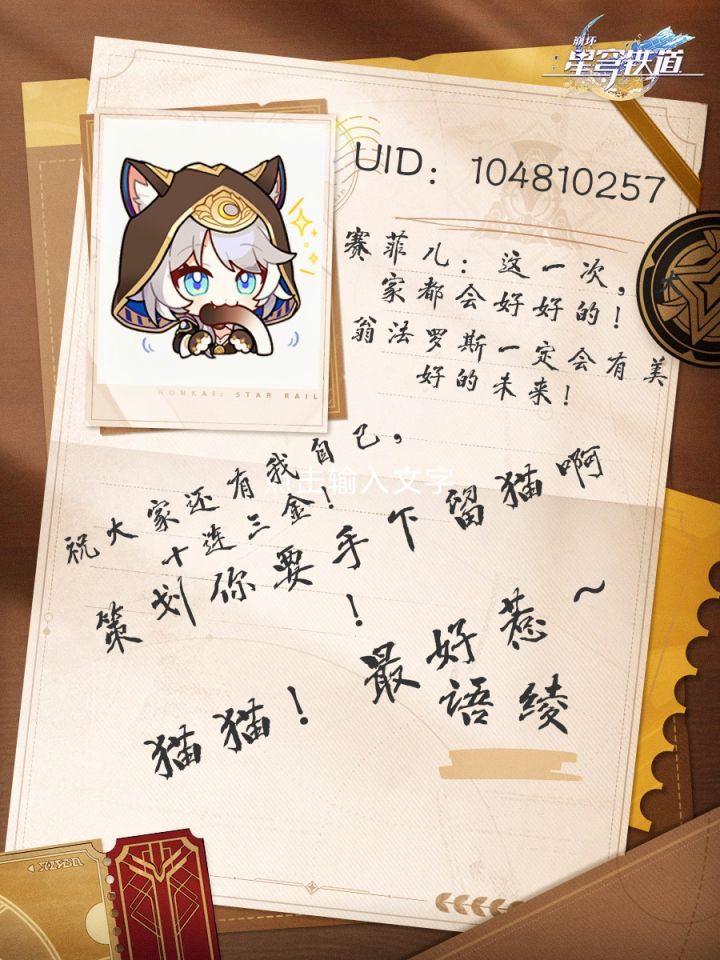 崩坏
星穹铁道
UID: 104810257
赛菲儿：这一次，大
家都会好好的！
翁法罗斯一定会有美
好的未来！
HONKAI: STAR RAIL
祝大家还有我自己，
十连三金！
点击输入文字
策划你要手下留猫啊
！
猫猫！最好惹～
语绫